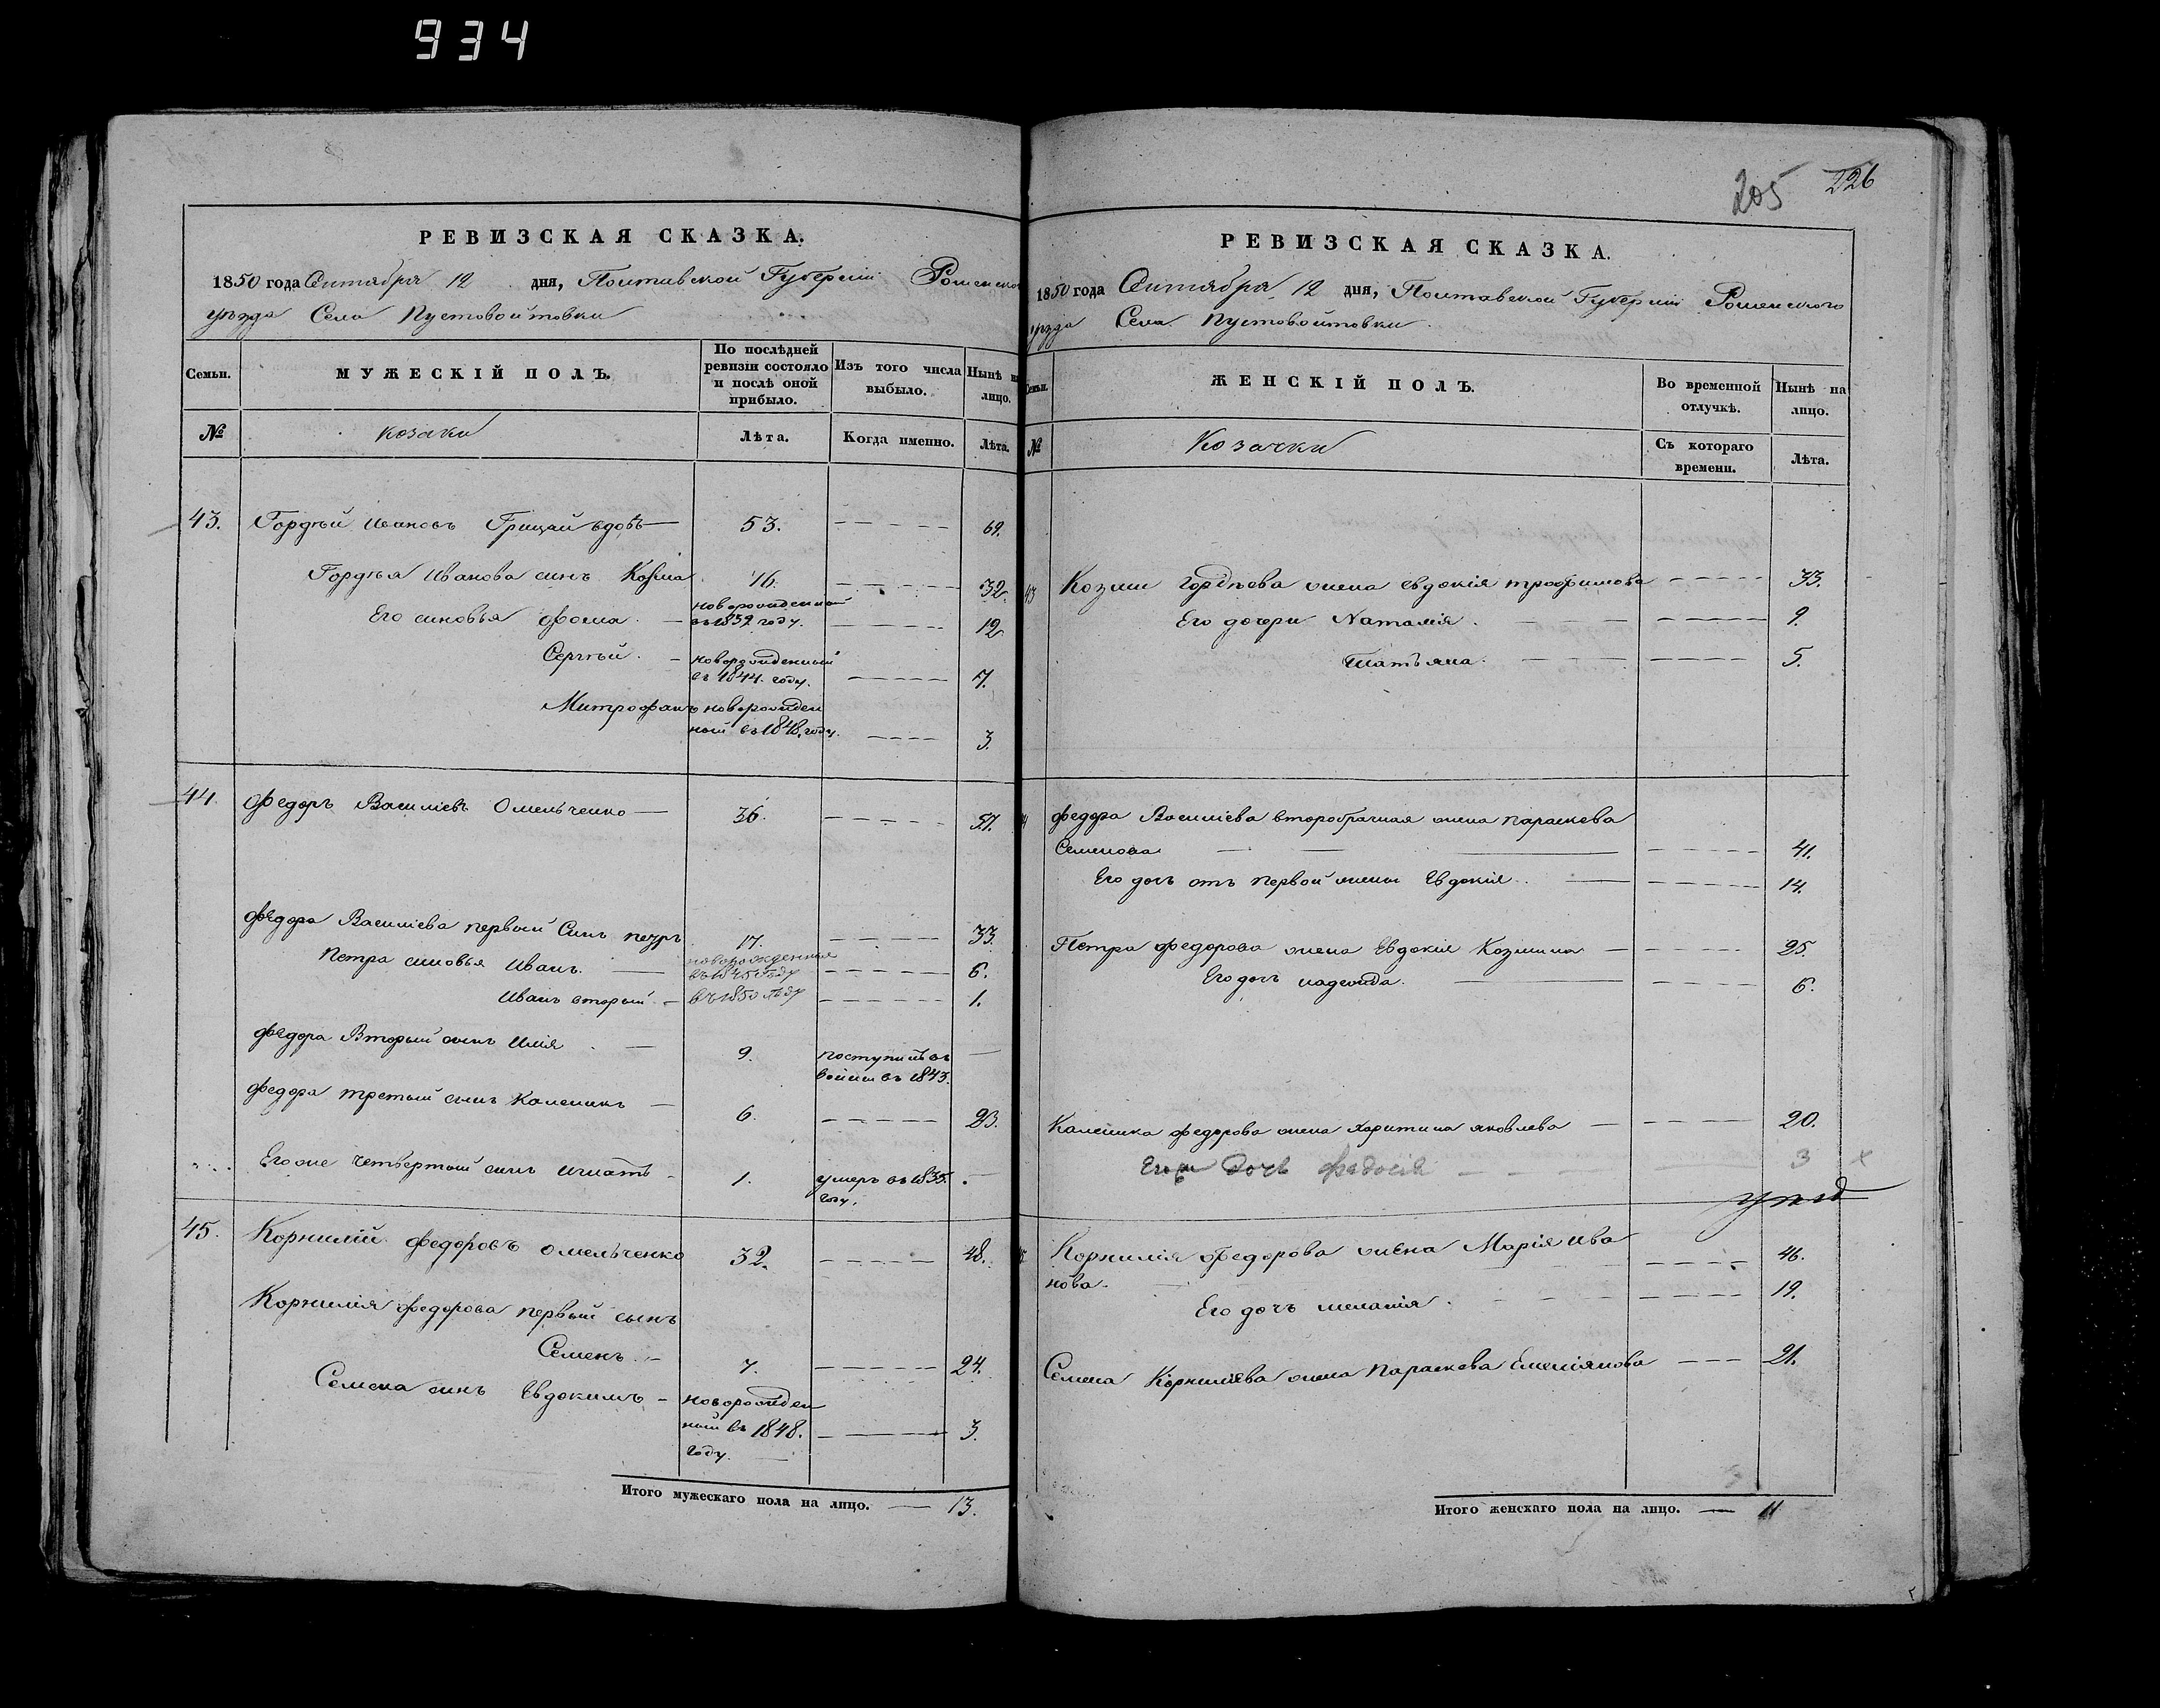 934
РЕВИЗСКАЯ СКАЗКА.
1850 года Сентября 12 дня, Полтавской Губерніи Роменского
уѣзда Села Пустовойтовки
Семьи.
МУЖЕСКІЙ ПОЛЪ.
По послѣдней
ревизіи состояло
и послѣ оной
прибыло.
Изъ того числа
выбыло.
Нынѣ на
лицо.
№
козаки
Лѣта.
Когда именно.
Лѣта.
43. Гордѣй Ивановъ Грицай вдовъ — 53. 69.
Гордѣя Иванова синъ Козма 16. 32.
Его синовья Фома. — новорожденный
въ 1839 году. 12
Сергѣй. — новорожденный
въ 1844. году. 7.
Митрофанъ новорожден
ный въ 1848. году. 3.
44. Федоръ Василіевъ Омельченко — 36. 51.
Федора Василіева первый Синъ петръ 17. 33.
Петра синовья Иванъ. — новорожденныя
въ 1845 году 6.
Иванъ вторый. — въ 1850 году 1.
Федора Вторый синъ Илія — 9. поступилъ въ —
воины въ 1843.
Федора третый синъ Каленикъ — 6. 23.
Его же четвертый синъ Игнатъ — 1. умеръ въ 1835.
году.
45. Корнилій Федоровъ Омельченко 32. 48.
Корнилія Федорова первый сынъ
Семенъ. — 7. 24.
Семена синъ Евдокимъ — новорожден
ный въ 1848. 3.
году. —
Итого мужескаго пола на лицо. — 13.
205 226
РЕВИЗСКАЯ СКАЗКА.
1850 года Сентября 12 дня, Полтавской Губерніи Роменского
уѣзда Села Пустовойтовки.
Семьи.
ЖЕНСКІЙ ПОЛЪ.
Во временной
отлучкѣ.
Нынѣ на
лицо.
№
Козачки
Съ котораго
времени.
Лѣта.
43 Козми Гордѣева жена Евдокія трофимова 33.
Его дочери Наталія. 9.
Татьяна. 5.
Федора Василіева второбрачная жена параскева
Семенова 41.
Его дочь отъ первой жены Евдокія. 14.
Петра Федорова жена Евдокія Козмина — 25.
Его дочь надежда. 6.
Каленика Федорова жена Харитина яковлева — 20.
Его дочъ Фядосія 3 х
Корнилія Федорова жена Марія Ива 46.
нова.
Его дочъ меланія. 19.
Семена Корниліева жена параскева Емеліянова 21.
Итого женскаго пола на лицо. — 11